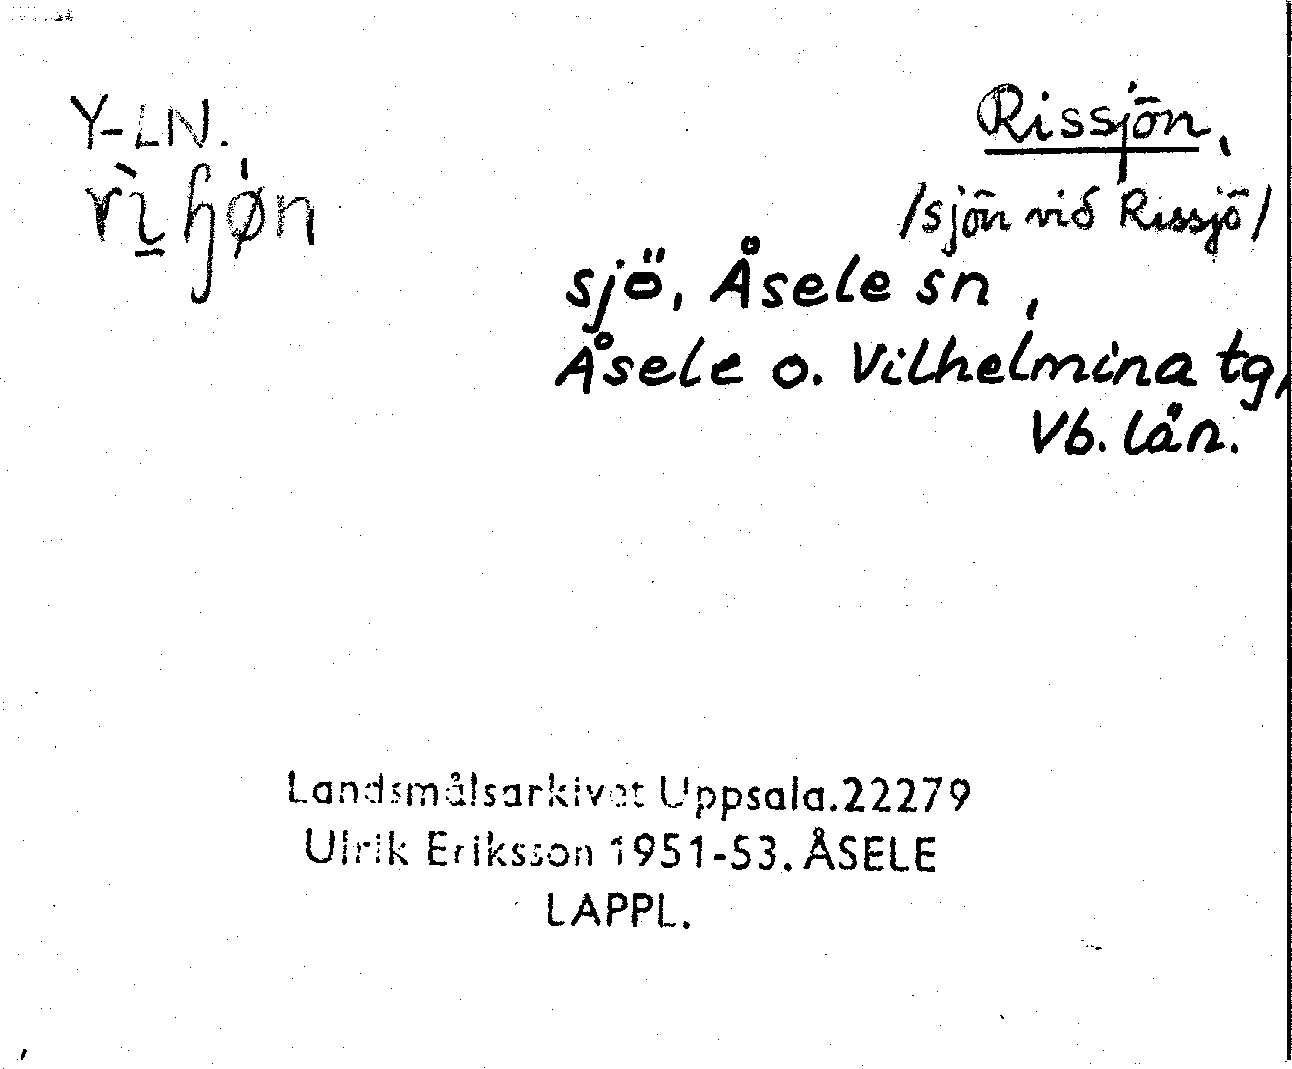 Y-LN.
Rissjön,
rìɧøn
/sjön vid Rissjö/
sjö, Åsele sn,
Åsele o. Vilhelmina tg,
Vb. län.
Landsmålsarkivet Uppsala.22279
Ulrik Eriksson 1951-53. ÅSELE
LAPPL.